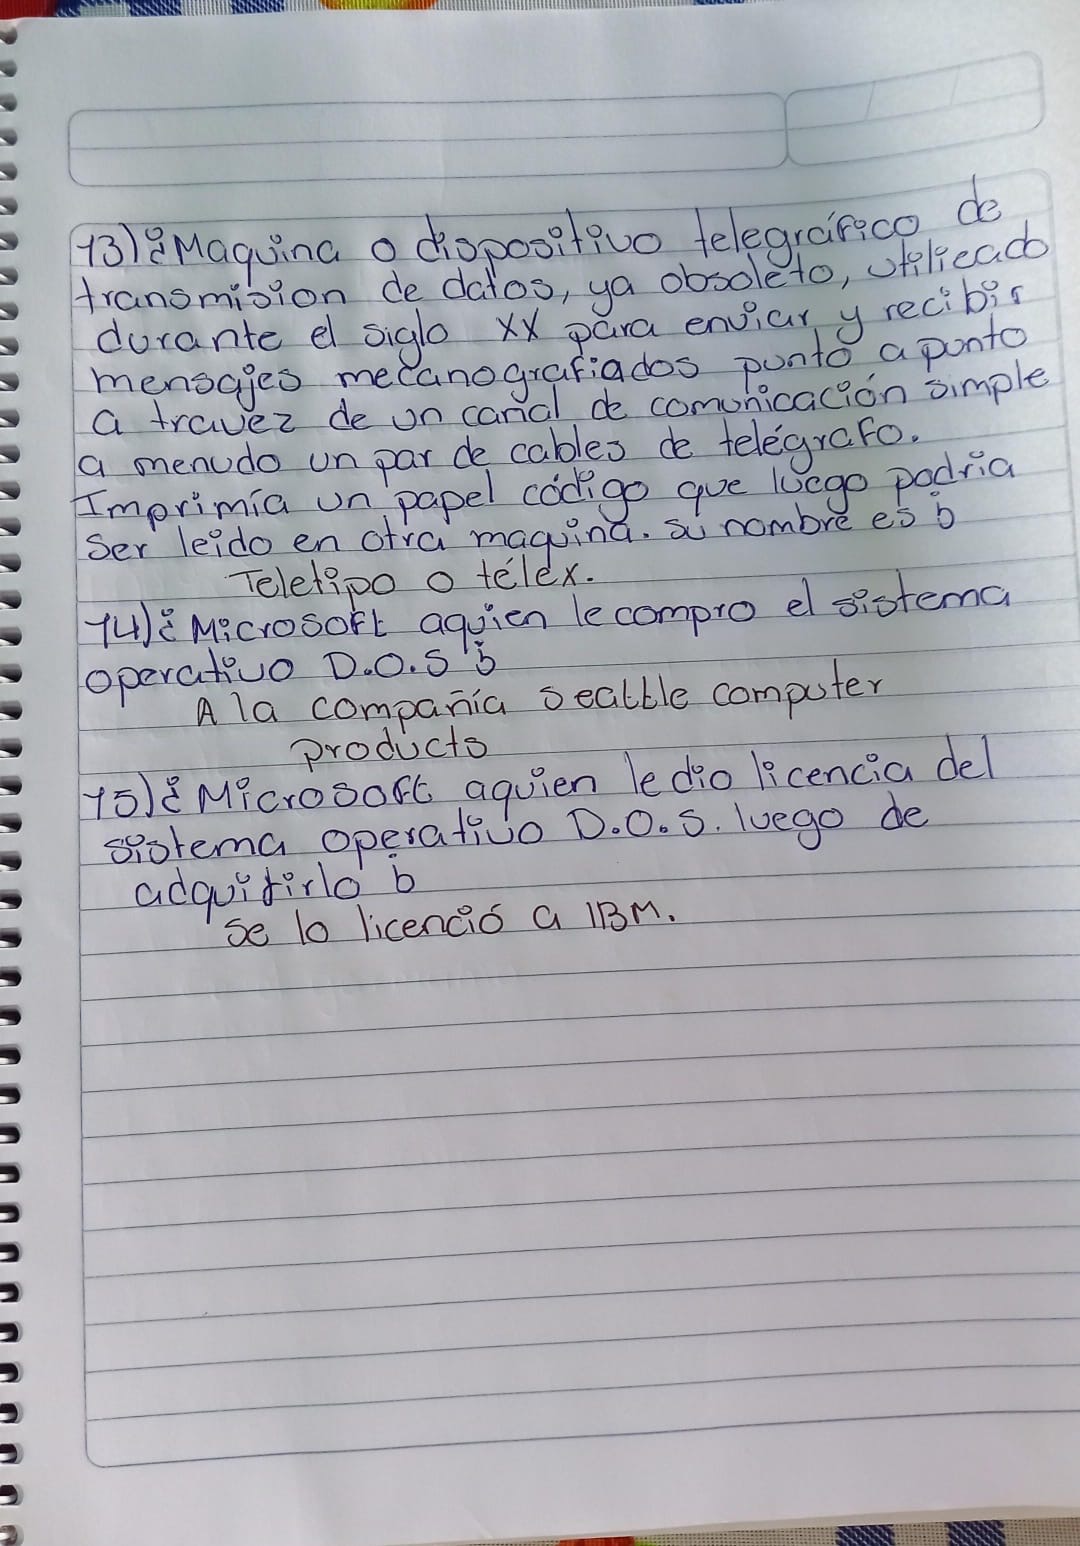 13) ¿Maquina o dispositivo telegráfico de
transmision de datos, ya obsoleto, utilizado
durante el siglo XX para enviar y recibir
mensajes mecanografiados punto a punto
a travez de un canal de comunicación simple
a menudo un par de cables de telégrafo.
Imprimía un papel código que luego podria
Ser leido en otra maquina. su nombre es?
Teletipo o télex.
14) ¿Microsoft aquien le compro el sistema
operativo D.O.S?
A la compañía Seattle computer
products
15) ¿Microsoft aquien le dio licencia del
sistema operativo D.O.S. luego de
adquirirlo?
se lo licenció a IBM.